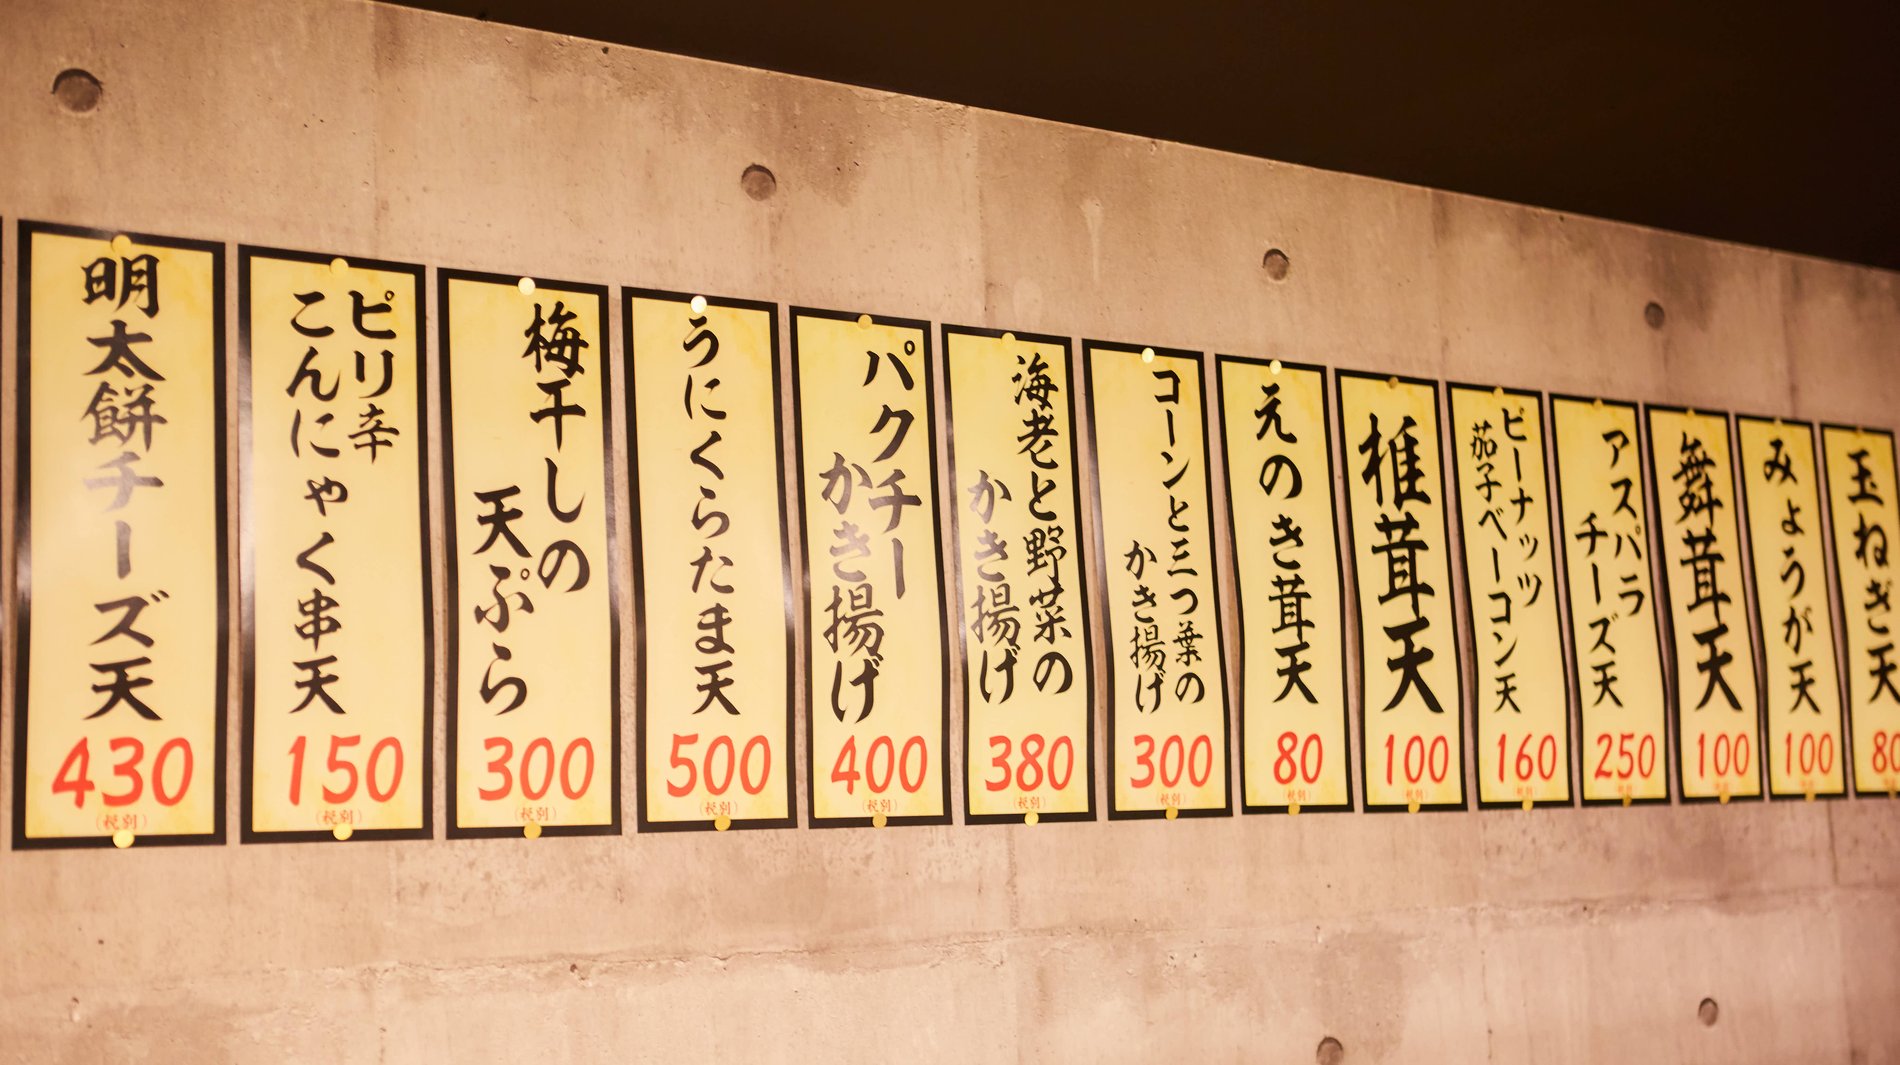 明太餅チーズ天
430
(税別)
ピリ辛
こんにゃく串天
150
(税別)
梅干しの
天ぷら
300
(税別)
うにくらたま天
500
(税別)
パクチー
かき揚げ
400
(税別)
海老と野菜の
かき揚げ
380
(税別)
コーンと三つ葉の
かき揚げ
300
(税別)
えのき茸天
80
(税別)
椎茸天
100
(税別)
ピーナッツ
茄子ベーコン天
160
アスパラ
チーズ天
250
舞茸天
100
みょうが天
100
玉ねぎ天
80